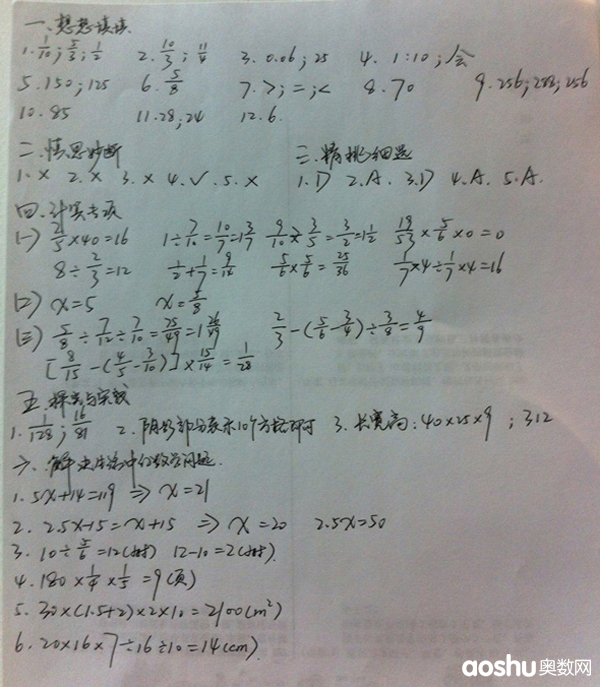 一、想想填填
1. 1/10; 5/3; 1/2 2. 10/3; 11/4 3. 0.06; 25 4. 1:10;
5. 150; 125 6. 5/8 7. >; =; < 8. 70 9. 256; 288; 256
10. 85 11. 28; 24 12. 6.
二、慎思妙断 三、精挑细选
1. × 2. × 3. × 4. √. 5. × 1. D 2. A. 3. D 4. A. 5. A.
四、计算专项
(一) 2/5×40=16 1÷7/10=10/7=1 3/7 9/10÷3/5=3/2=1 1/2 18/53×5/6×0=0
8÷2/3=12 1/2+1/7=9/14 5/6×5/6=25/36 1/7×4÷1/7×4=16
(二) x=5 x=5/8
(三) 5/8÷7/12÷7/10=75/49=1 26/49 2/3-(5/6-3/4)÷3/8=4/9
[8/15-(4/5-3/10)]×15/14=1/28
五、探索与实践
1. 1/128; 16/81 2. 阴影部分表示10个方格即可 3. 长宽高: 40×25×9; 312
六、解决生活中的数学问题.
1. 5x+14=119 ⇒ x=21
2. 2.5x-15=x+15 ⇒ x=20 2.5x=50
3. 10÷5/6=12(时) 12-10=2(时)
4. 180×1/4×1/5=9(页)
5. 30×(1.5+2)×2×10=2100(m²)
6. 20×16×7÷16÷10=14(cm).
aoshu奥数网